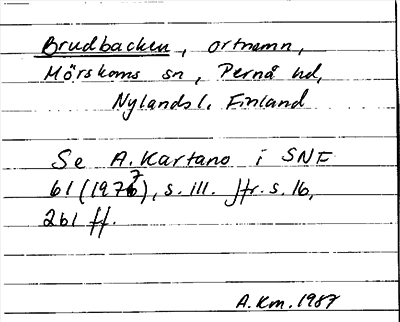 Brudbacken, ortnamn,
Mörskoms sn, Pernå hd,
Nylands l. Finland
Se A. Kartano i SNF
61 (1977), s. 111. Jfr. s. 16,
261 ff.
A. Km. 1987